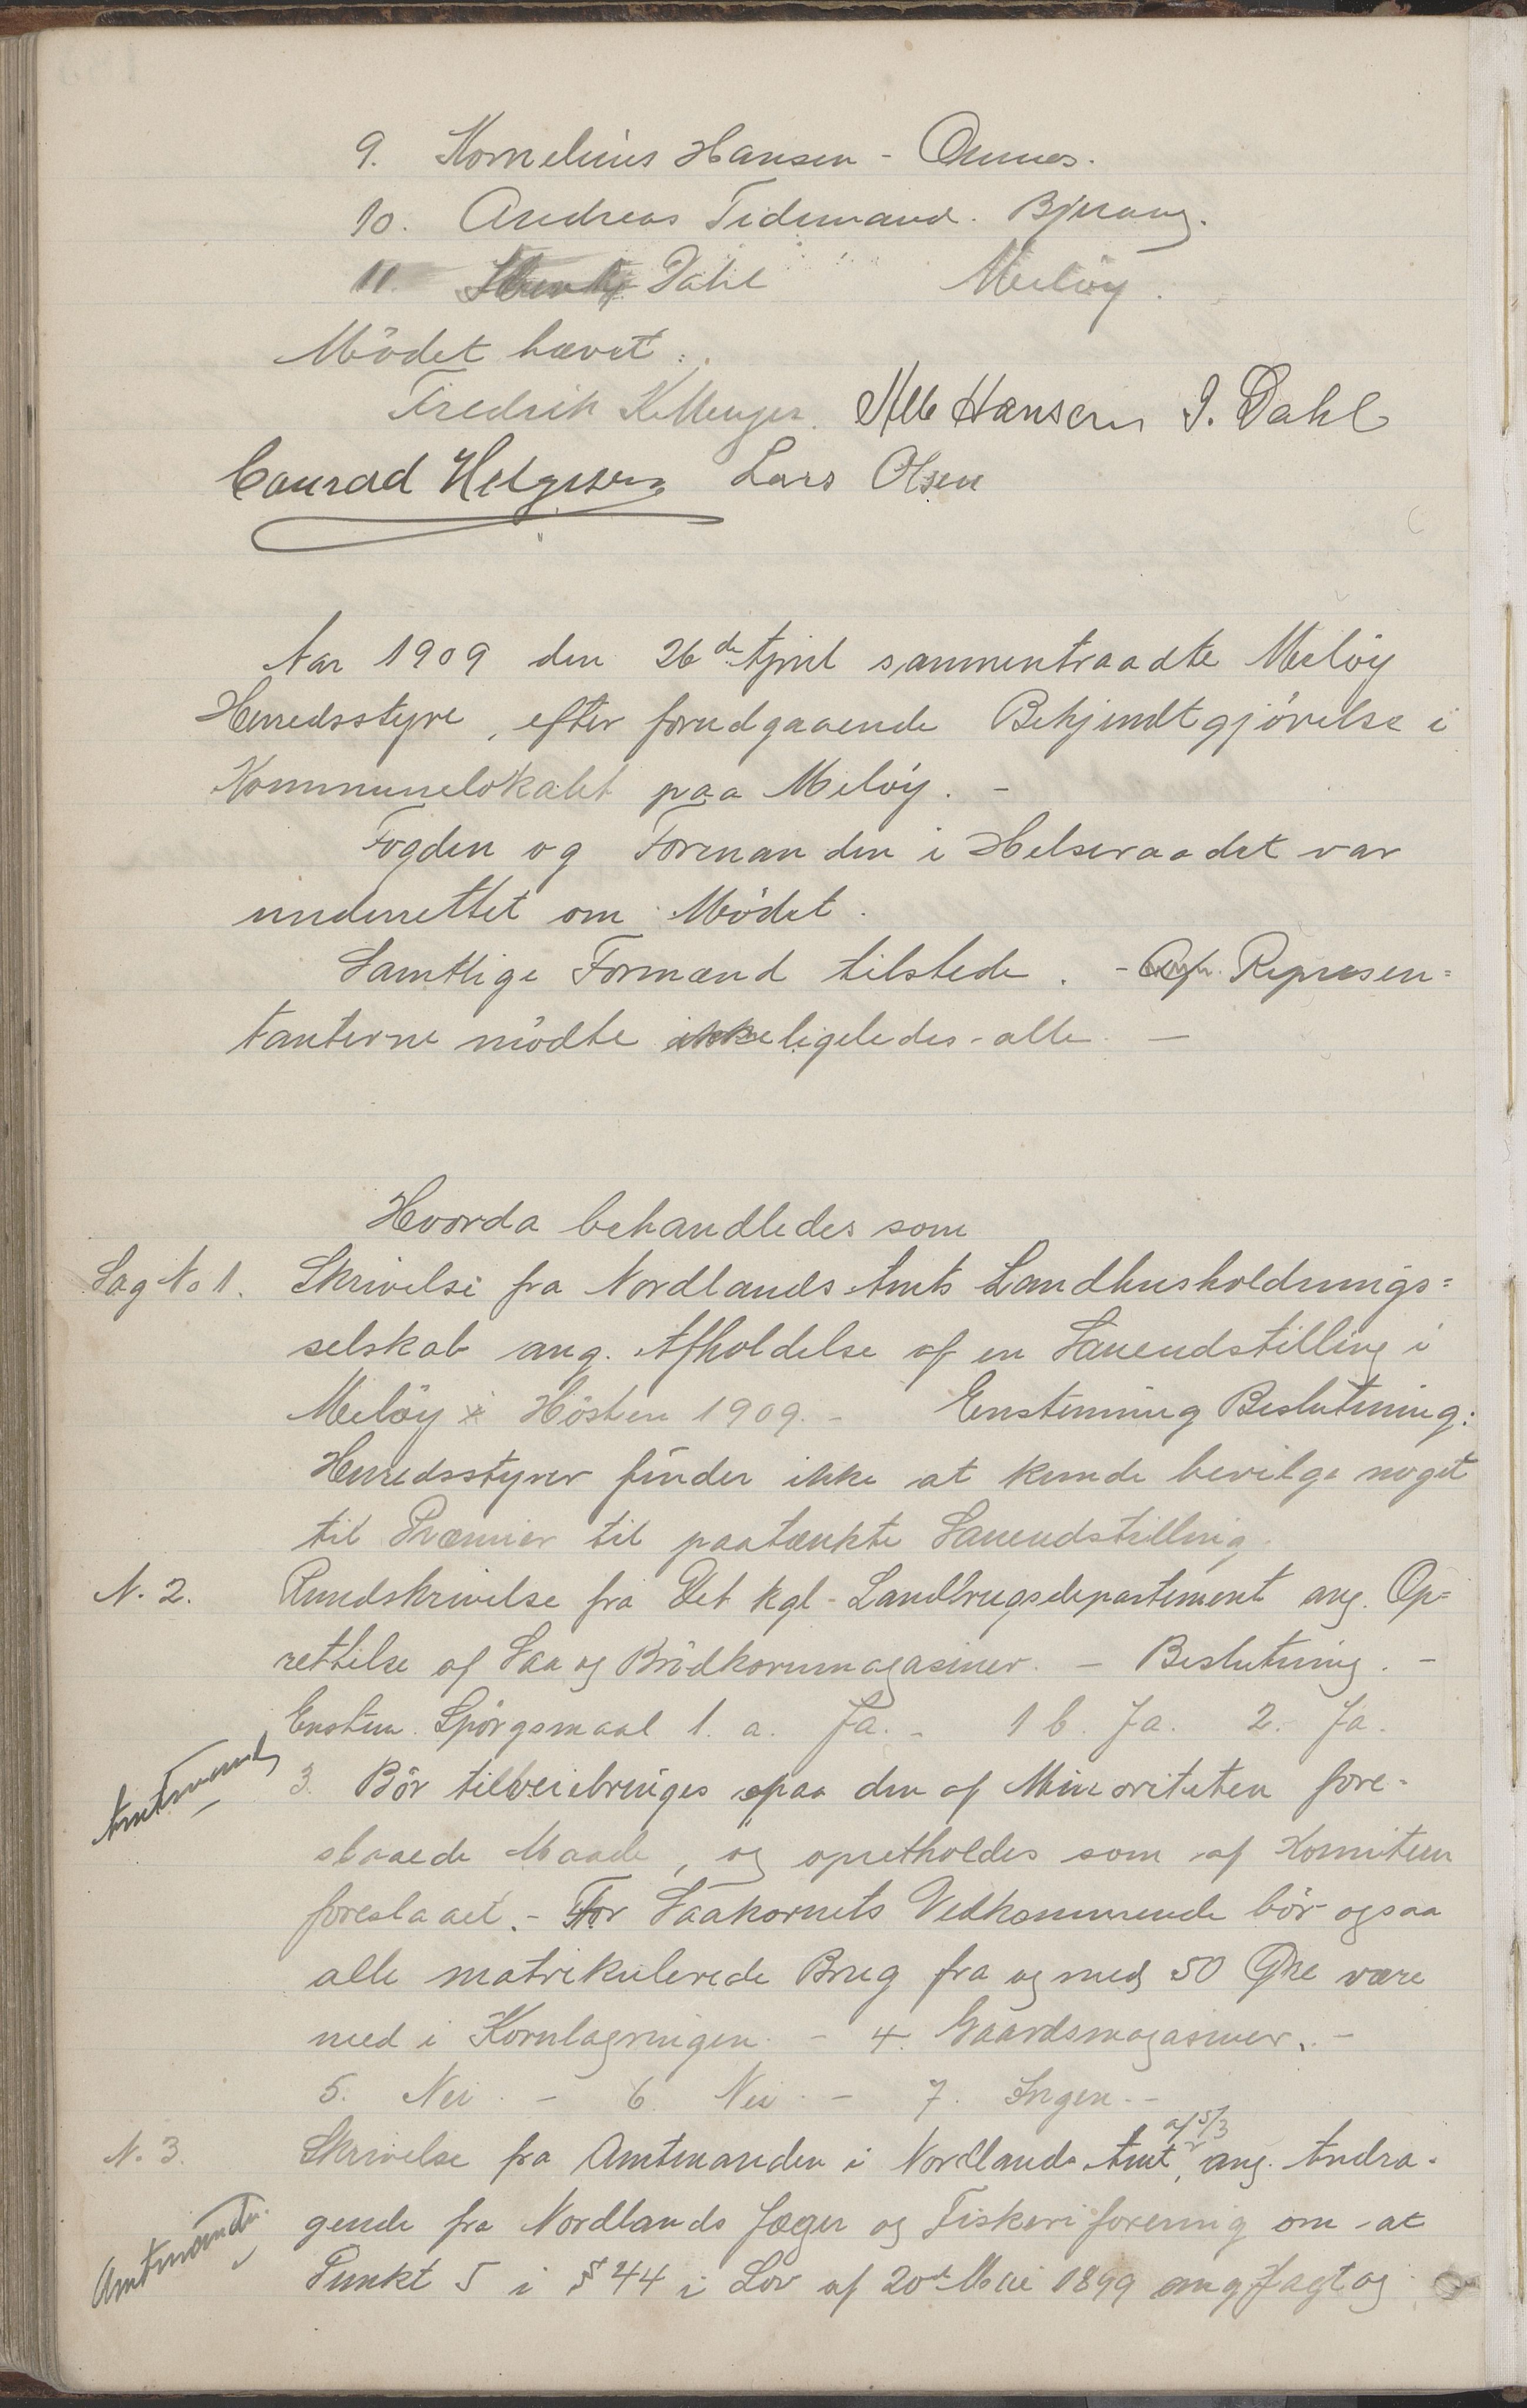 9. Kornelius Hansen - Ørnes.
10. Andreas Tidemand. Bjerang.
11. Dahl Meløy.
Mödet hævet.
Fredrik Hansen J. Dahl
Conrad Helgesen Lars Olsen
Aar 1909 den 26de April sammentraadte Melöy
Herredsstyre, efter forudgaaende Bekjendtgjörelse i
Kommunelokalet paa Melöy. -
Fogden og Formanden i Helseraadet var
underrettet om Mödet.
Samtlige Formænd tilstede. - Represen=
tanterne mödte ikke ligeledes - alle. -
Hvorda behandledes som
Sag No 1. Skrivelse fra Nordlands Amts Landhusholdnings=
selskab ang. Afholdelse af en Saueudstilling i
Melöy i Hösten 1909. - Enstemmig Beslutning:
Herredsstyret finder ikke at kunde bevilge noget
til Præmier til paatænkte Saueudstilling.
N. 2. Rundskrivelse fra Det kgl. Landbrugsdepartement ang. Op=
rettelse af Saa og Brödkornmagasiner. - Beslutning. -
Enstem. Spörgsmaal 1. a. Ja. - 1 b. Ja. 2. Ja.
Amtmand 3. Bör tilveiebringes paa den af Minoriteten fore-
slaaede Maade, og opretholdes som af Komiteen
foreslaaet. - For Saakornets Vedkommende bör ogsaa
alle matrikulerede Brug fra og med 50 Øre være
med i Kornlagringen. - 4. Gaardsmagasiner. -
5. Nei. - 6. Nei. - 7. Ingen. -
af 5/3
N. 3. Skrivelse fra Amtmanden i Nordlands Amt, ang. Andra-
gende fra Nordlands Jæger og Fiskeriforening om at
Amtmanden Punkt 5 i § 44 i Lov af 20de Mai 1899 ang Jagt og